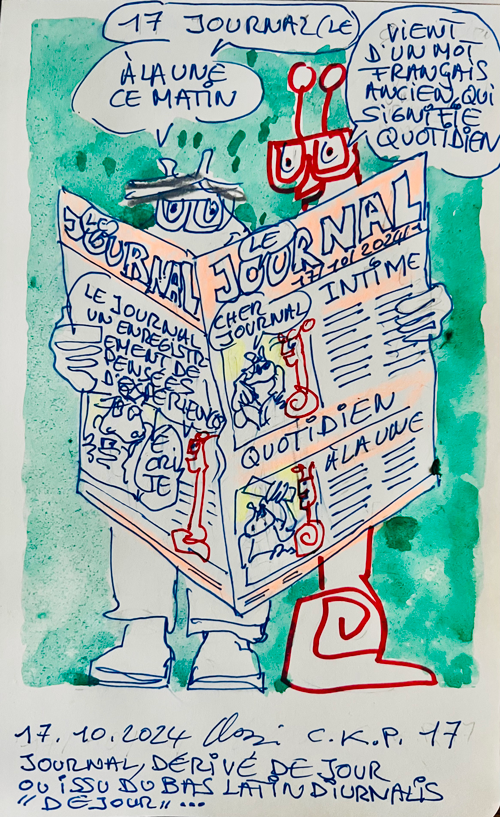 17 JOURNAL (LE
À LA UNE
CE MATIN
VIENT
D'UN MOT
FRANÇAIS
ANCIEN, QUI
SIGNIFIE
QUOTIDIEN
LE
JOURNAL
LE
JOURNAL
17/10/2024
INTIME
LE JOURNAL
UN ENREGISTR-
EMENT DE
PENSÉES
D'EXPÉRIENCES
CHER
JOURNAL
JE
CRIE
QUOTIDIEN
À LA UNE
17.10.2024 C.K.P. 17
JOURNAL, DÉRIVÉ DE JOUR
OU ISSU DU BAS LATIN DIURNALIS
"DE JOUR" ...